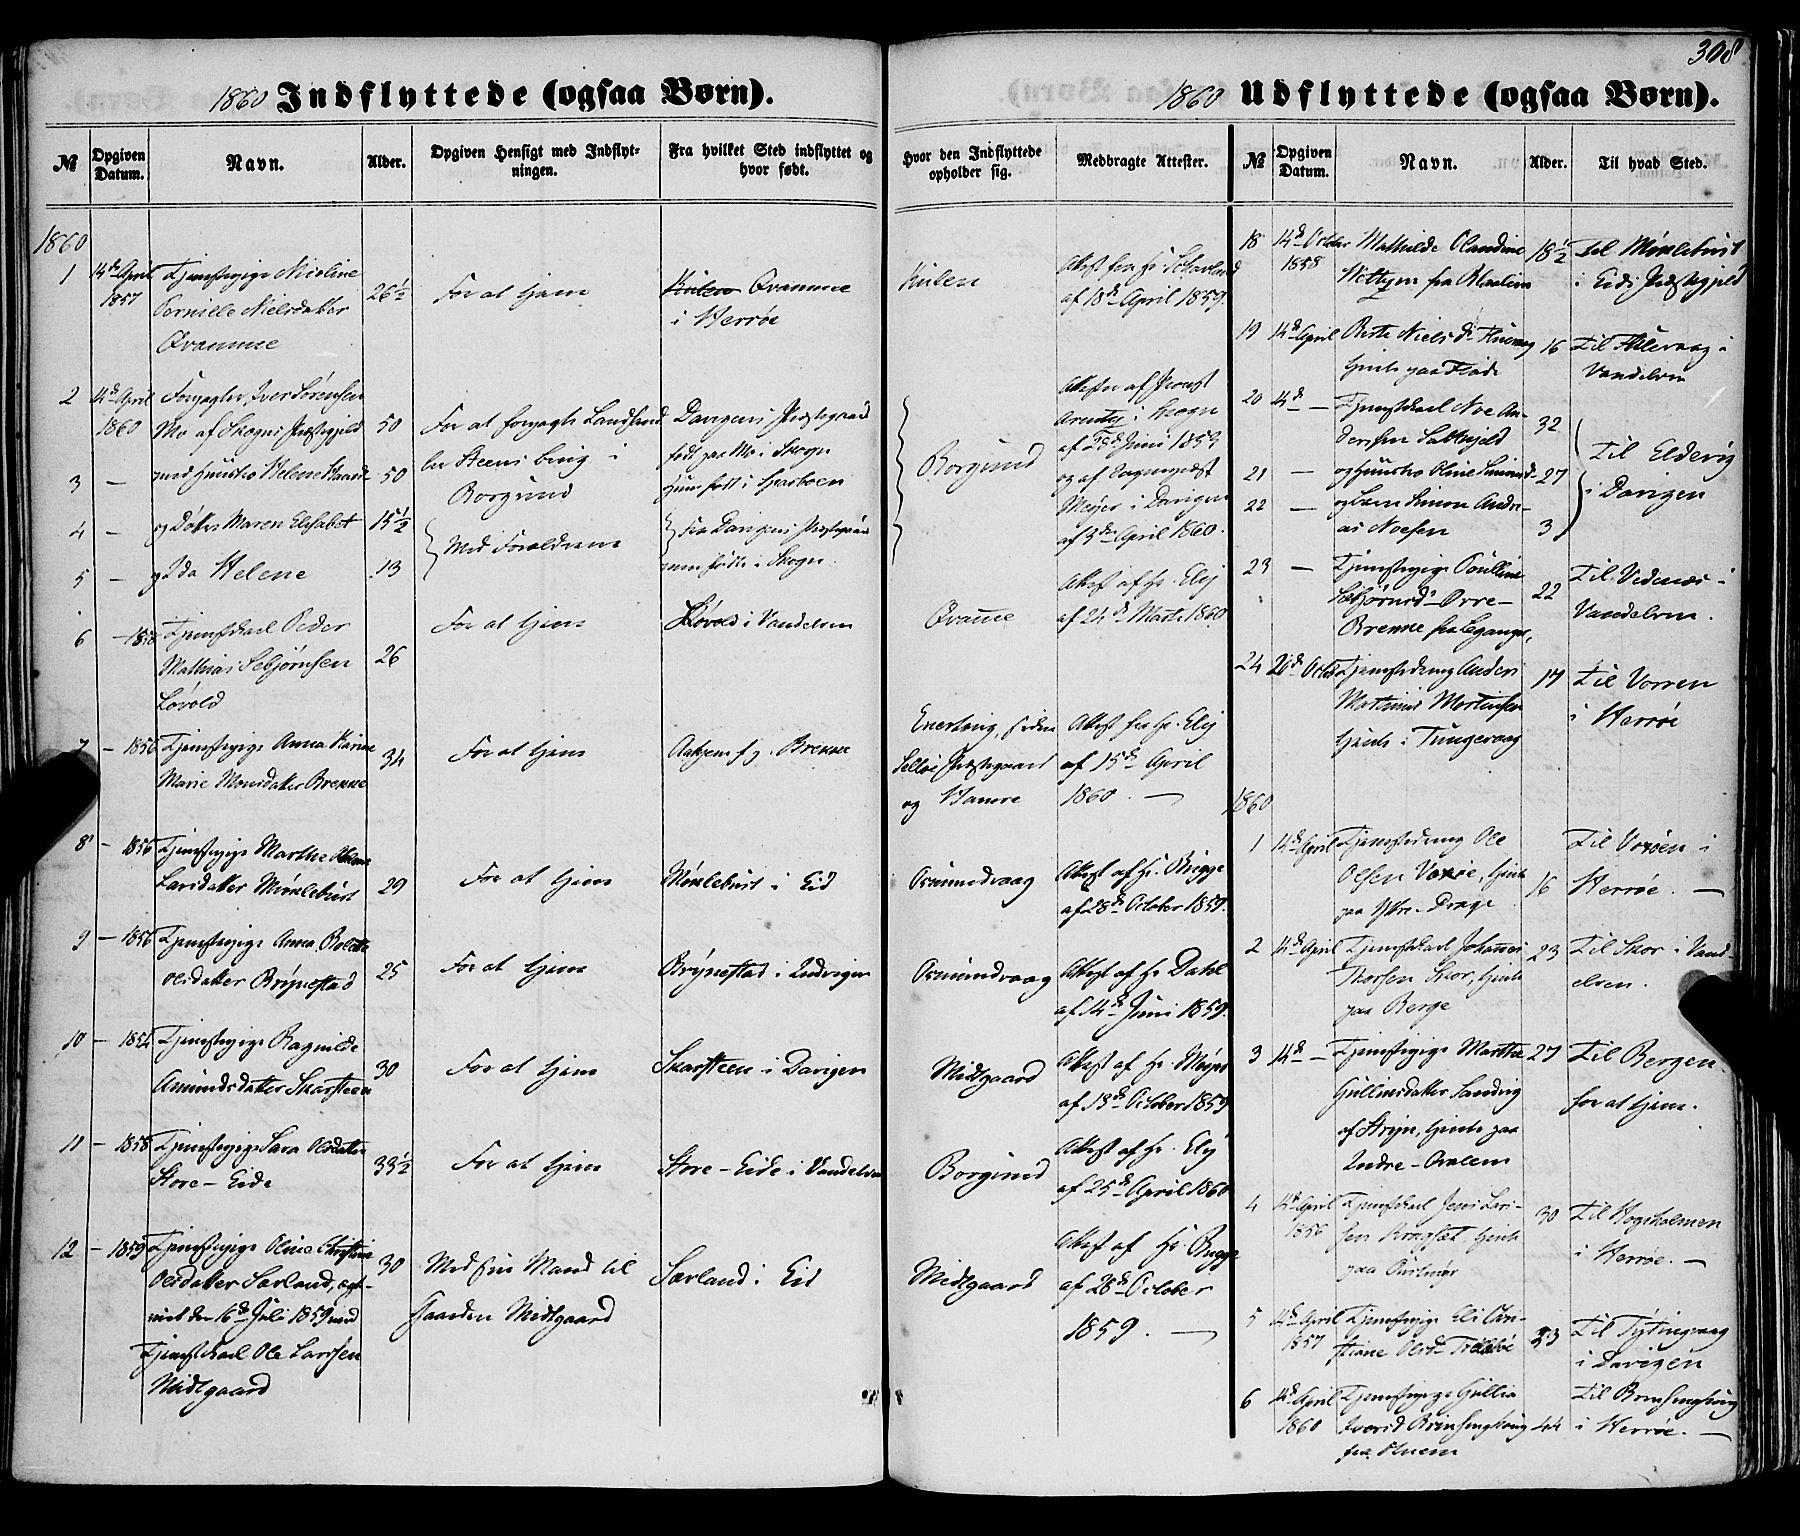 308
1860 Indflyttede (ogsaa Børn).
№
Opgiven Datum.
Navn.
Alder.
Opgiven Hensigt med Indflyt-
ningen.
Fra hvilket Sted indflyttet og
hvor født.
Hvor den Indflyttede
opholder sig.
Medbragte Attester.
1860
1
14de April
1857
Tjenestepige Nicoline
Pernille Nielsdatter
Qvamme
26½
For at tjene
Qvamme
i Herrøe
Attest fra Hr.
af 18de April 1859.
2
14de April
1860
Forpagter Iver Sørensen
Mo af Skogns Præstegjeld
50
For at forpagte
i
Borgund
Davigens Præstegaard
født paa Mo i Skogn
Borgund
Attester af Provst
i Skogn
af Juni 1853
og af Sognepræst
Meyer i Davigen
af 3de April 1860.
3 -
med Hustru Helene
50
Hun født i
4 -
og Datter Maren Elisabet
15½
Med Forældrene
Fra Davigens Præstegaard
født i Skogn.
5 -
og Ida Helene
13
6
- 1858
Tjenestekarl Peder
Mathias Sebjørnsen
Løvold
26
For at tjene
Løvold i Vandelven
Qvamme
Attest af Hr. Elg
af 24de Marts 1860
7
- 1856
Tjenestepige Anna Karine
Marie Monsdatter Brenne
34
For at tjene
Brenne
Selløe Præstegaard
og Hamre
Attest fra Hr. Elg
af 15de April
1860. —
8
- 1856
Tjenestepige Marthe
Larsdatter Myklebust
29
For at tjene
Myklebust i Eid
Osmundvaag
Attest af Hr. Brigge
af 28de October 1859.
9
- 1856
Tjenestepige Anna Bolette
Olsdatter Brynestad
25
For at tjene
Brynestad i Indvigen
Osmundvaag
Attest af Hr Dahl
af 14de Juni 1859.
10
Tjenestepige Ragnilde
Amundsdatter Skarsteen
30
For at tjene
Skarsteen i Davigen
Midtgaard
Attest af Hr. Meyer
af 13de October 1859
11
- 1858
Tjenestepige Sara Olsdatter
Store-Eide
33½
For at tjene
Store-Eide i Vandelven
Borgund
Attest af Hr. Elg
af 25de April 1860
12
- 1859
Tjenestepige Oline Christine
Olsdatter Sørland, ægte-
viet den 16de Juli 1859 med
Tjenestekarl Ole Larssen
Midtgaard
30
Med sin Mand til
Gaarden Midtgaard
Sørland i Eid
Midtgaard
Attest af Hr. Brigge
af 28de October
1859. —
1860 Udflyttede (ogsaa Børn).
№
Opgiven Datum.
Navn.
Alder.
Til hvad Sted.
18
14de October
1858
Mathilde Olandine
fra
18½
Til Myklebust
i Eids Præstegjeld
19
14de April
Berte Nielsd.
tjente paa Flade
16
Til Flillevaag i
Vandelven
20
14de —
Tjenestekarl Noe An-
dersen
32
Til Eldevig
i Davigen
21 —
og Hustru Oline
27
22 —
og Søn Simon Andre-
as Noesen
3
23 —
Tjenestepige Pouline
Sebjørnsd. Øvre-
Brenne fra
22
Til Vedenæs i
Vandelven.
24
Tjenestedreng Anders
Mathias Mortensen
tjente i Tungevaag
17
Til Vorren
i Herrøe
1860
1
14de April
Tjenestedreng Ole
Olsen Voxøe, tjente
paa Ytre-Drage
16
Til Voxøen i
Herrøe. —
2
14de April
Tjenestekarl Johannes
Thorsen Skor, tjente
paa Berge
23
Til Skor i Vand-
elven.
3
14de —
Tjenestepige Marthe
Gullaksdatter Sandvig
af Stryn, tjente paa
Indre-Ovalem
27
Til Bergen
for at tjene.
4
14de April
1856
Tjenestekarl Jens Lar-
sen tjente
paa
30
Til Hogsholmen
i Herrøe. —
5
14de April
1857
Tjenestepige Eli Chri-
stiane Olsd.
33
Til Tytingvaag
i Davigen
6
14de April
1860
Tjenestepige Gullia
fra
44
i Herrøe. —